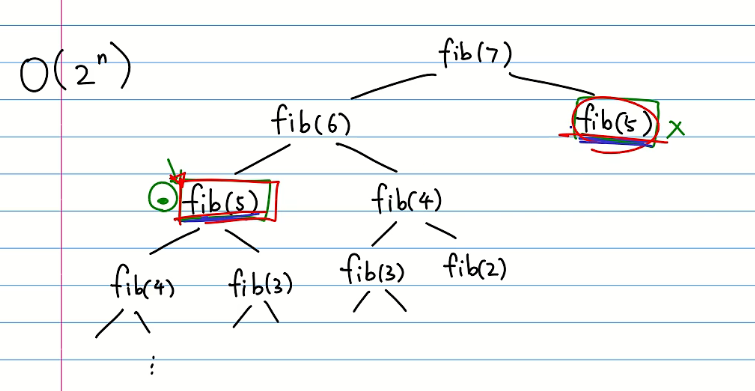 O(2ⁿ)
fib(7)
fib(6) fib(5) x
fib(5) fib(4)
fib(4) fib(3) fib(3) fib(2)
⋮